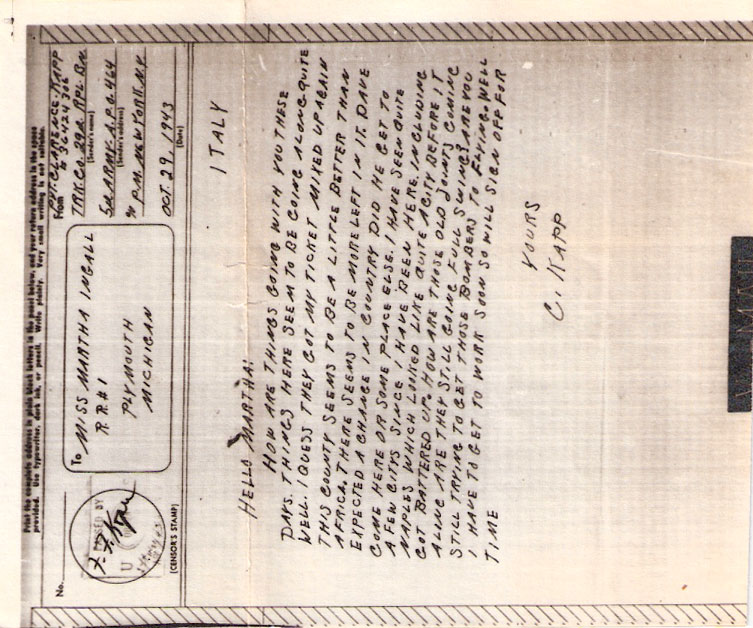 Print the complete address in plain block letters in the panel below, and your return address in the space
provided. Use typewriter, dark ink, or pencil. Write plainly. Very small writing is not suitable.
No.
PASSED BY
U
(CENSOR'S STAMP)
To MISS MARTHA INGALL
R.R.#1
PLYMOUTH
MICHIGAN
From
PVT. CLARENCE KAPP
# 36424306
(Sender's name)
TRK.Co. 29th RPL BN
(Sender's address)
5th ARMY A.P.O. 464
℅ P.M. NEW YORK. N.Y.
OCT. 29, 1943
(Date)
ITALY
HELLO MARTHA:
HOW ARE THINGS GOING WITH YOU THESE
DAYS. THINGS HERE SEEM TO BE GOING ALONG QUITE
WELL. I QUESS THEY GOT MY TICKET MIXED UP AGAIN
THIS COUNTY SEEMS TO BE A LITTLE BETTER THAN
AFRICA, THERE SEEMS TO BE MORE LEFT IN IT. DAVE
EXPECTED A CHANGE IN COUNTRY DID HE GET TO
COME HERE OR SOME PLACE ELSE. I HAVE SEEN QUITE
A FEW CITYS SINCE I HAVE BEEN HERE. INCLUDING
NAPLES WHICH LOOKED LIKE QUITE A CITY BEFORE IT
GOT BATTERED UP. HOW ARE THOSE OLD JOINTS COMING
ALONG ARE THEY STILL GOING FULL SWING? ARE YOU
STILL TRYING TO GET THOSE BOMBERS TO FLYING. WELL
I HAVE TO GET TO WORK SOON SO WILL SIGN OFF FOR
TIME
YOURS
C. KAPP